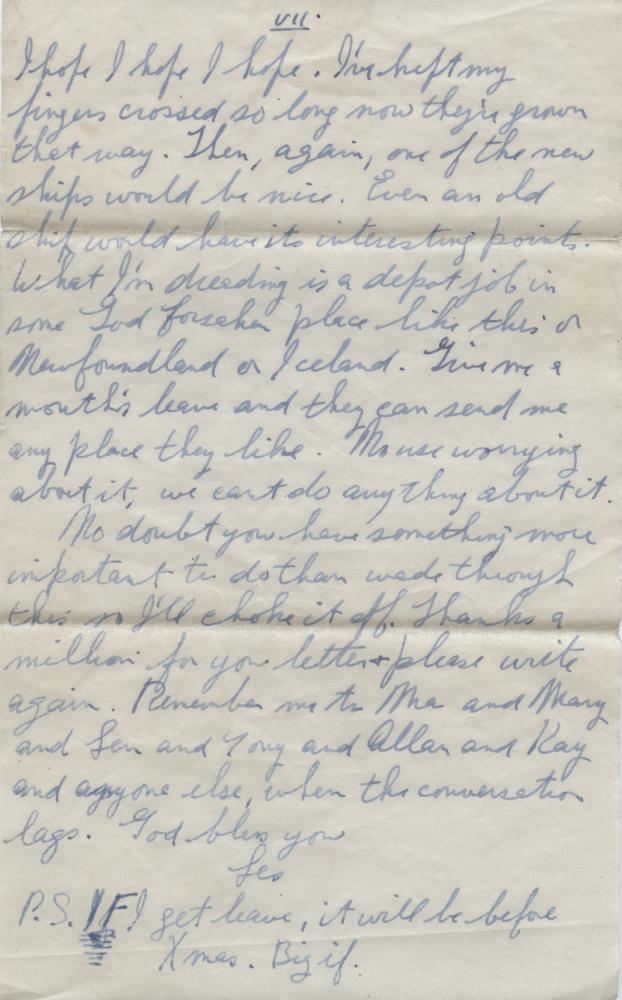 VII.
I hope I hope I hope. I've kept my
fingers crossed so long now they're grown
that way. Then, again, one of the new
ships would be nice. Even an old
ship would have its interesting points.
What I'm dreading is a depot job in
some God forsaken place like this or
Newfoundland or Iceland. Give me a
month's leave and they can send me
any place they like. No use worrying
about it, we can't do anything about it.
No doubt you have something more
important to do than wade through
this so I'll choke it off. Thanks a
million for your letter & please write
again. Remember me to Ma and Mary
and Len and Tony and Allan and Kay
and anyone else, when the conversation
lags. God bless you
Les
P.S. IF I get leave, it will be before
Xmas. Big if.